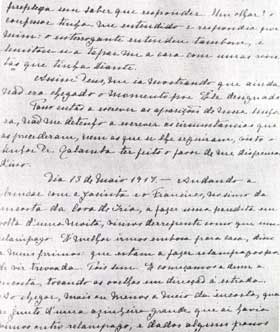 perplexa sem saber que responder. Um olhar
confessor tinha me entendido e respondia por
mim: o interrogante entendeu tambem, e
limitou-se a tapar-me a cara com umas
que tinha diante.
Assim Deus, me ia mostrando que ainda
não era chegado o momento por Ele designado
Passo então a escrever as aparições de Nossa Senho-
ra, não me detenho a escrever as circunstancias que
as precederam, nem as que se lhe seguiram, visto o
Senhor Dr. Galamba ter feito o favor de me dispensar
disso.
Dia 13 de Maio 1917. — Andando a
brincar com a Jacinta e o Francisco, no cimo da
encosta da Cova de Iria, a fazer uma paredita em
volta d'uma moita, vimos derrepente como que um
relampago. É melhor irmos embora para casa, disse
a meus primos: que estam a fazer relampagos pode
vir trovoada. Pois sim. E começámos a descer a
encosta, tocando as ovelhas em direcção á estrada.
Ao chegar, mais ou menos a meio da encosta, quasi
junto d'uma azinheira grande que aí havia
vimos outro relampago, e dados alguns passos